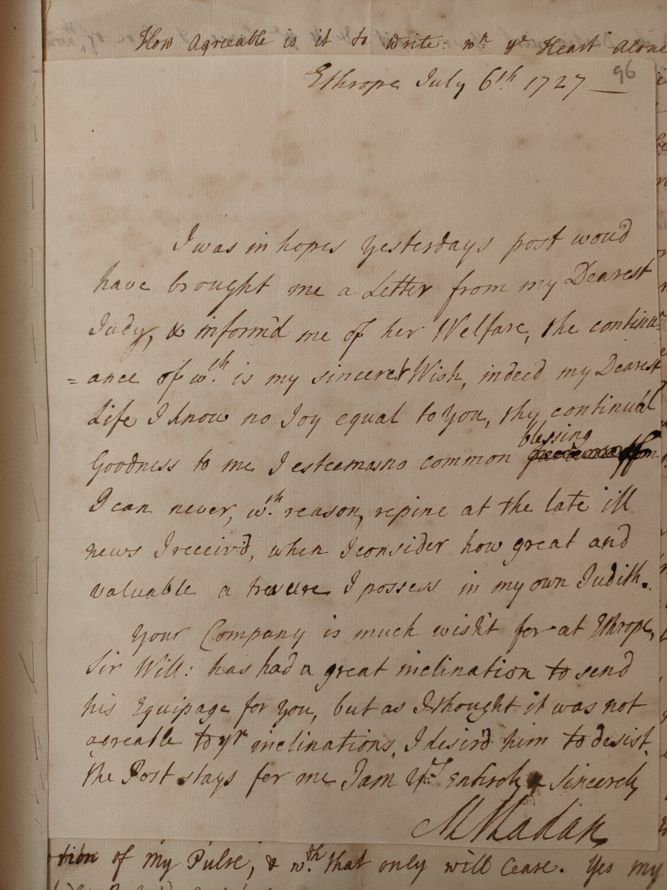 How Agreeable is it to write: wn. ye Heart Alone
96
Ethrope July 6th 1727
I was in hopes yesterdays post woud
have brought me a Letter from my Dearest
Judy, & inform'd me of her Welfare, the continu-
=ance of wth. is my sincerest Wish, indeed my Dearest
Life I know no Joy equal to You, thy continual
blessing
Goodness to me I esteem as no common
I can never, wth. reason, repine at the late ill
news I receiv'd, when I consider how great and
valuable a tresure I possess in my own Judith.
Your Company is much wish't for at Ethrope,
Sir Will: has had a great inclination to send
his Equipage for You, but as I thought it was not
agreable to yr inclinations, I desir'd him to desist.
the Post stays for me I am Yrs. Entirely & Sincerely
M Madan
tion of my Pulse, & wth. that only will Cease. Yes my